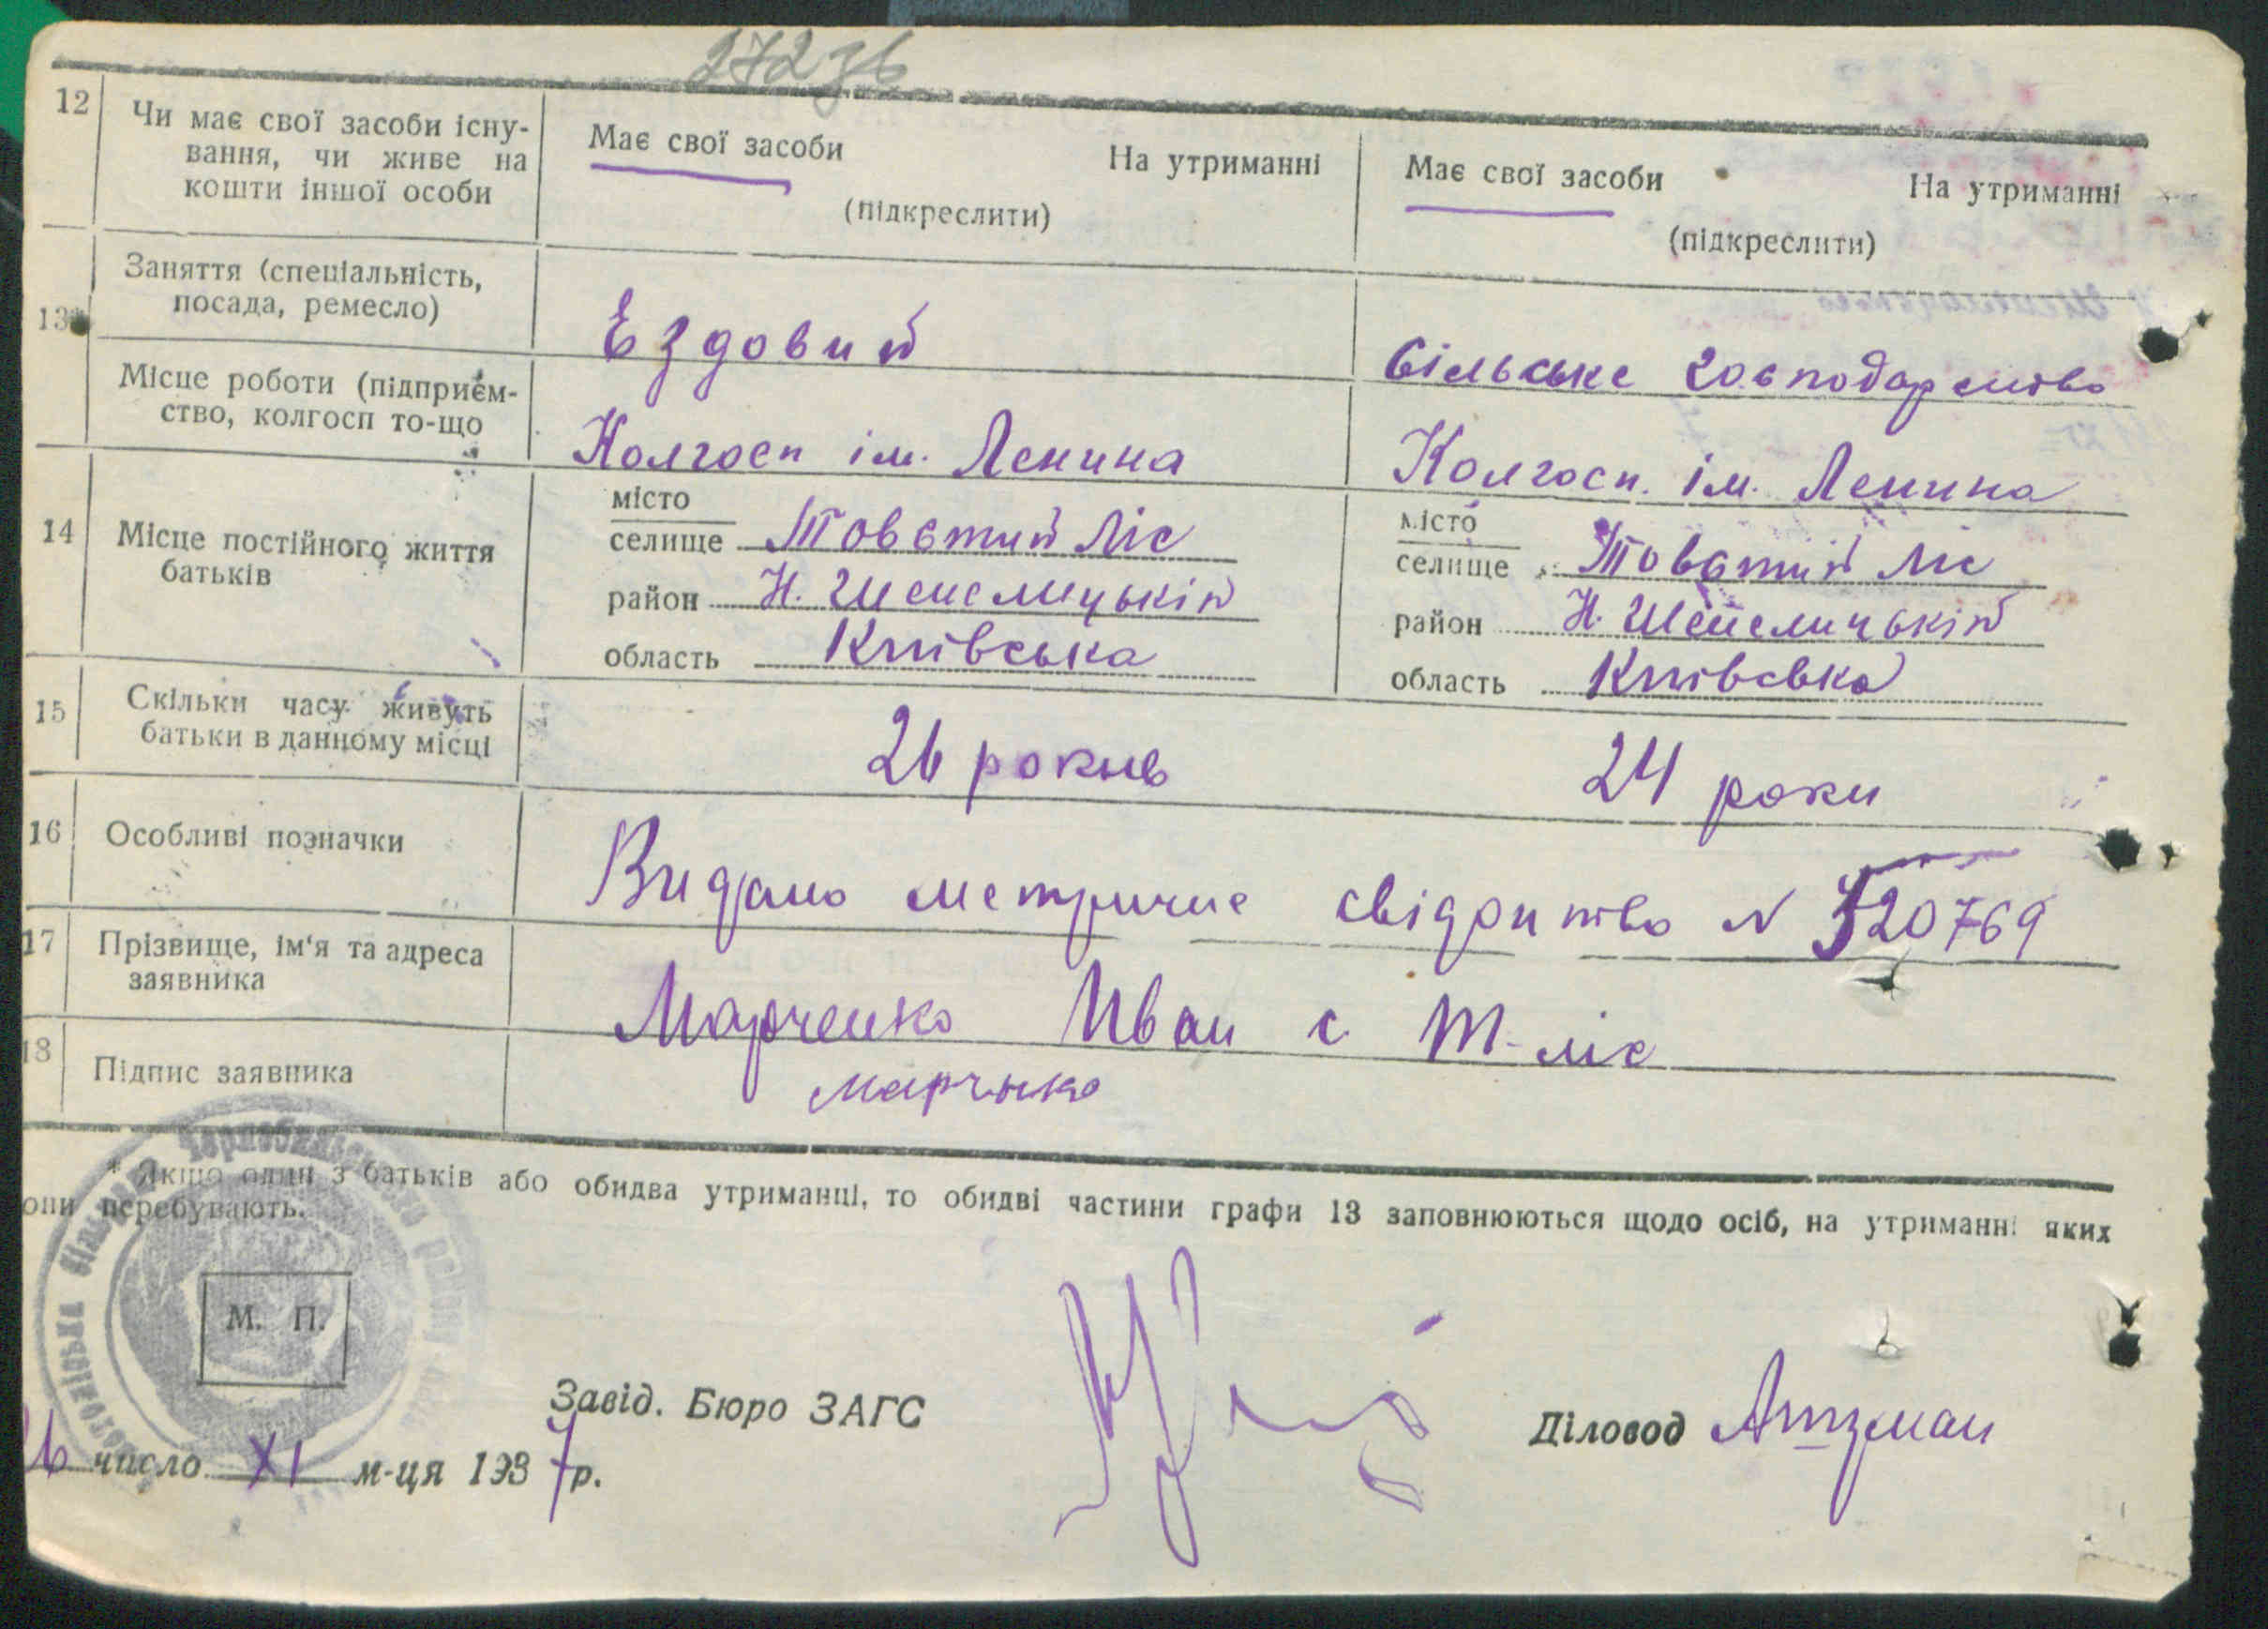 272зв
12 Чи має свої засоби існу-
вання, чи живе на
кошти іншої особи
Має свої засоби На утриманні
(підкреслити)
Має свої засоби На утриманні
(підкреслити)
13*
Заняття (спеціальність,
посада, ремесло)
Ездовий
Сільське господарство
Місце роботи (підприєм-
ство, колгосп то-що
Колгосп ім. Ленина
Колгосп. ім. Ленина
14 Місце постійного життя
батьків
місто
селище Товстий Ліс
район Н. Шепелицькій
область Київська
місто
селище Товстий Ліс
район Н. Шепелицькій
область Київська
15 Скільки часу живуть
батьки в данному місці
26 рокив
24 роки
16 Особливі позначки
Видано метричне свідоитво N 520769
17 Прізвище, ім'я та адреса
заявника
Марченко Иван с Т-ліс
18 Підпис заявника
Марченко
* Якщо один з батьків або обидва утриманці, то обидві частини графи 13 заповнюються щодо осіб, на утриманні яких
они перебувають.
М. П.
Завід. Бюро ЗАГС
Діловод Атзман
26 число XI м-ця 1937р.